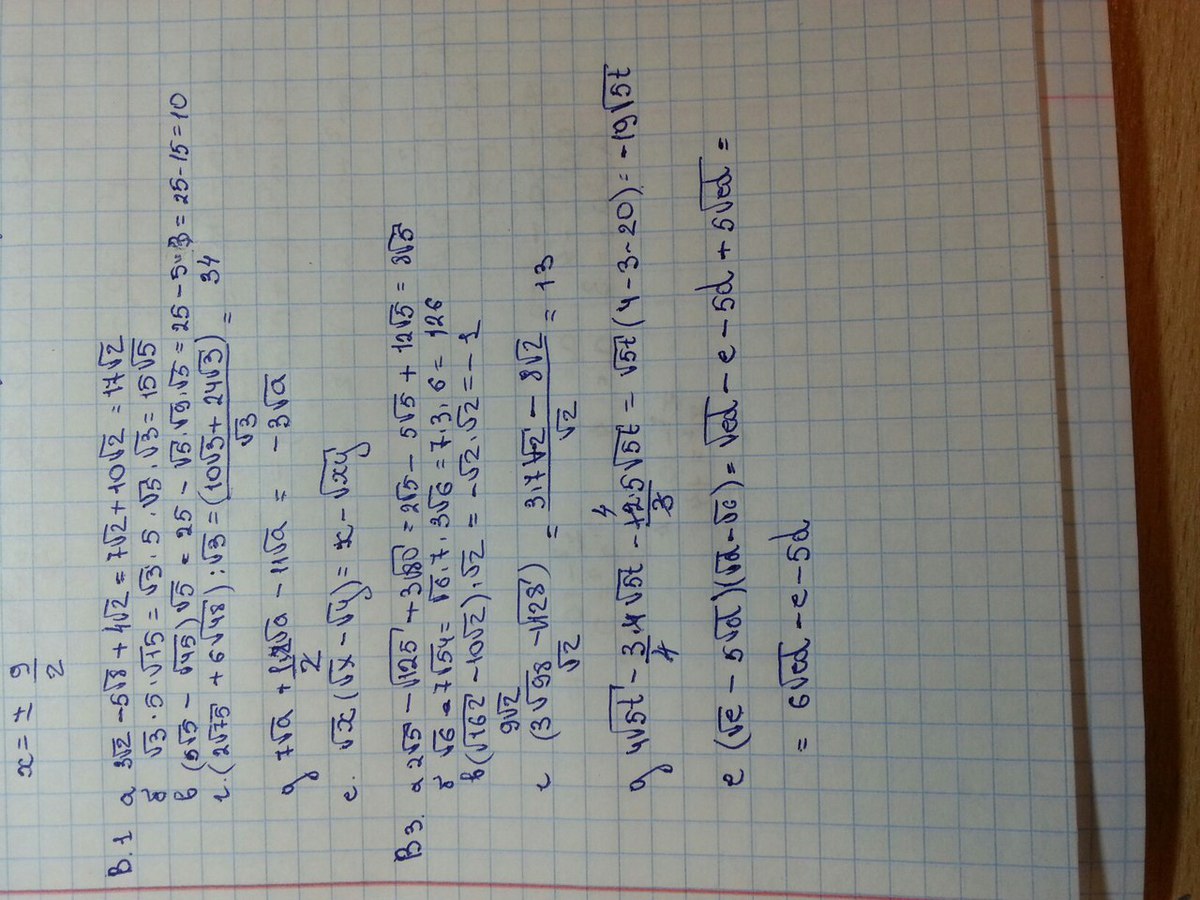 x = ± 9/2
В.1 а 3√2 - 5√8 + 4√2 = 7√2 + 10√2 = 17√2
б √3 · 5 · √15 = √3 · 5 · √5 · √3 = 15√5
в (5√5 - √45) √5 = 25 - √5 · √9 · √5 = 25 - 5 · 3 = 25 - 15 = 10
г. (2√75 + 6√48) : √3 = (10√3 + 24√3)/√3 = 34
д 7√a + /2 - 11√a = -3√a
е. √x (√x - √y) = x - √xy
В 3. а 2√5 - √125 + 3√80 = 2√5 - 5√5 + 12√5 = 8√5
б √6 · 7√54 = √6 · 7 · 3√6 = 7 · 3 · 6 = 126
в (√162 - 10√2) · √2 = -√2 · √2 = - 1
9√2
г (3√98 - √128)/√2 = (3·7√2 - 8√2)/√2 = 13
д 4√5t - 3·4√5t/4 - √5t = √5t (4 - 3 - 20) = -19√5t
е (√c - 5√d)(√d - √c) = √cd - c - 5d + 5√cd =
= 6√cd - c - 5d